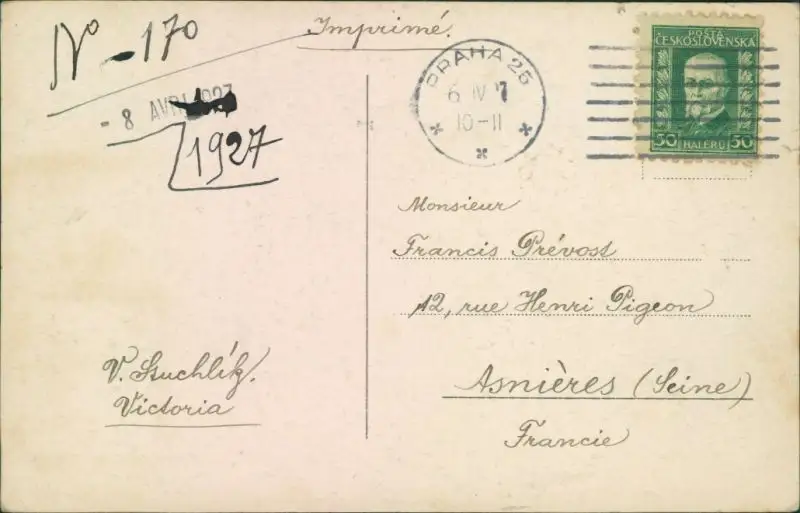 Nº - 170
Imprimé.
- 8 AVRI 1927
1927
PRAHA 25
6 IV 7
10-11
POŠTA
ČESKOSLOVENSKÁ
50 HALÉRŮ 50
Monsieur
Francis Prévost
12, rue Henri Pigeon
Asnières (Seine)
Francie
V. Stuchlík.
Victoria